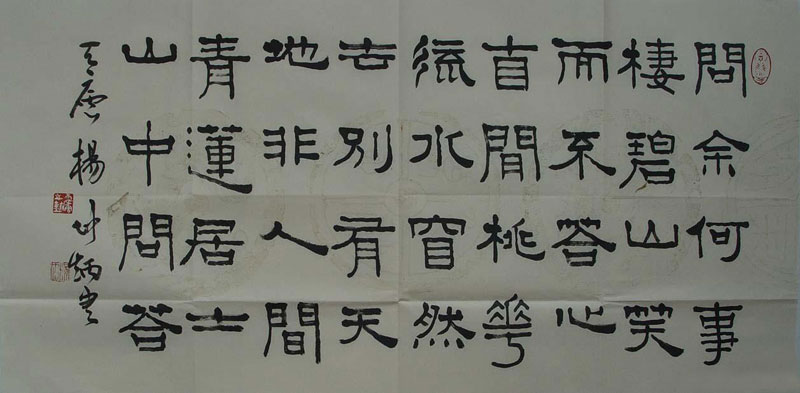 問余何事
棲碧山笑
而不答心
自閒桃華
流水窅然
去別有天
地非人間
青蓮居士
山中問答
楊炳書